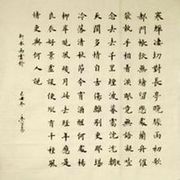 寒蟬淒切對長亭晚驟雨初歇
都門帳飲無緒留戀處蘭舟催
發執手相看淚眼竟無語凝噎
念去去千里煙波暮靄沈沈楚
天闊多情自古傷離別更那堪
冷落清秋節今宵酒醒何處楊
柳岸曉風殘月此去經年應是
良辰好景虛設便縱有千種風
情更與何人說